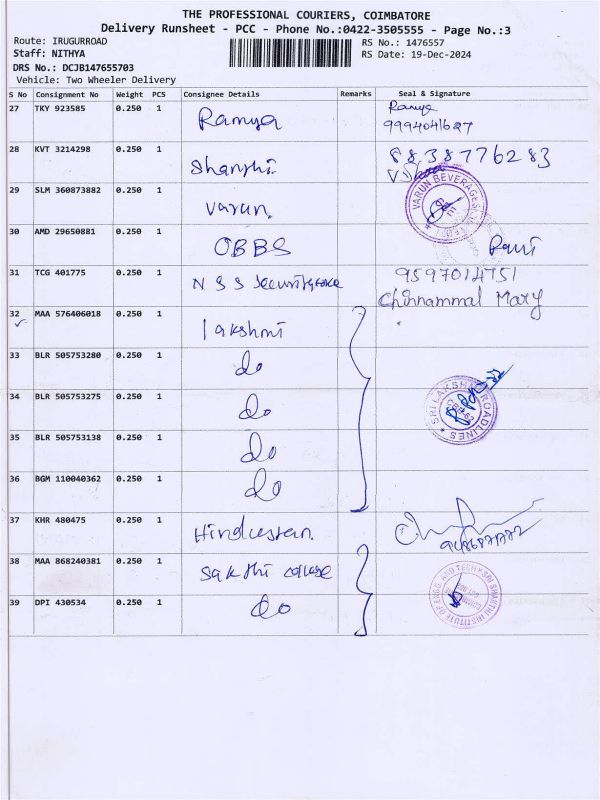 THE PROFESSIONAL COURIERS, COIMBATORE
Delivery Runsheet - PCC - Phone No.:0422-3505555 - Page No.:3
Route: IRUGURROAD
RS No.: 1476557
Staff: NITHYA
RS Date: 19-Dec-2024
DRS No.: DCJB147655703
Vehicle: Two Wheeler Delivery
S No Consignment No Weight PCS Consignee Details Remarks Seal & Signature
27 TKY 923585 0.250 1 Ramya Ramya
9994041627
28 KVT 3214298 0.250 1 Shanthi 8838776283
29 SLM 360873882 0.250 1 Varun. VARUN BEVERAGES
30 AMD 29650881 0.250 1 OBBS
31 TCG 401775 0.250 1 NSS 9597014751
Chinnammal Mary
32 MAA 576406018 0.250 1 lakshmi
33 BLR 505753280 0.250 1 do
34 BLR 505753275 0.250 1 do SRI LAKSHMI ROADLINES
35 BLR 505753138 0.250 1 do
36 BGM 110040362 0.250 1 do
37 KHR 480475 0.250 1 Hindustan.
38 MAA 868240381 0.250 1 Sakthi college
39 DPI 430534 0.250 1 do SRI SHAKTHI INSTITUTE OF ENGG. AND TECH